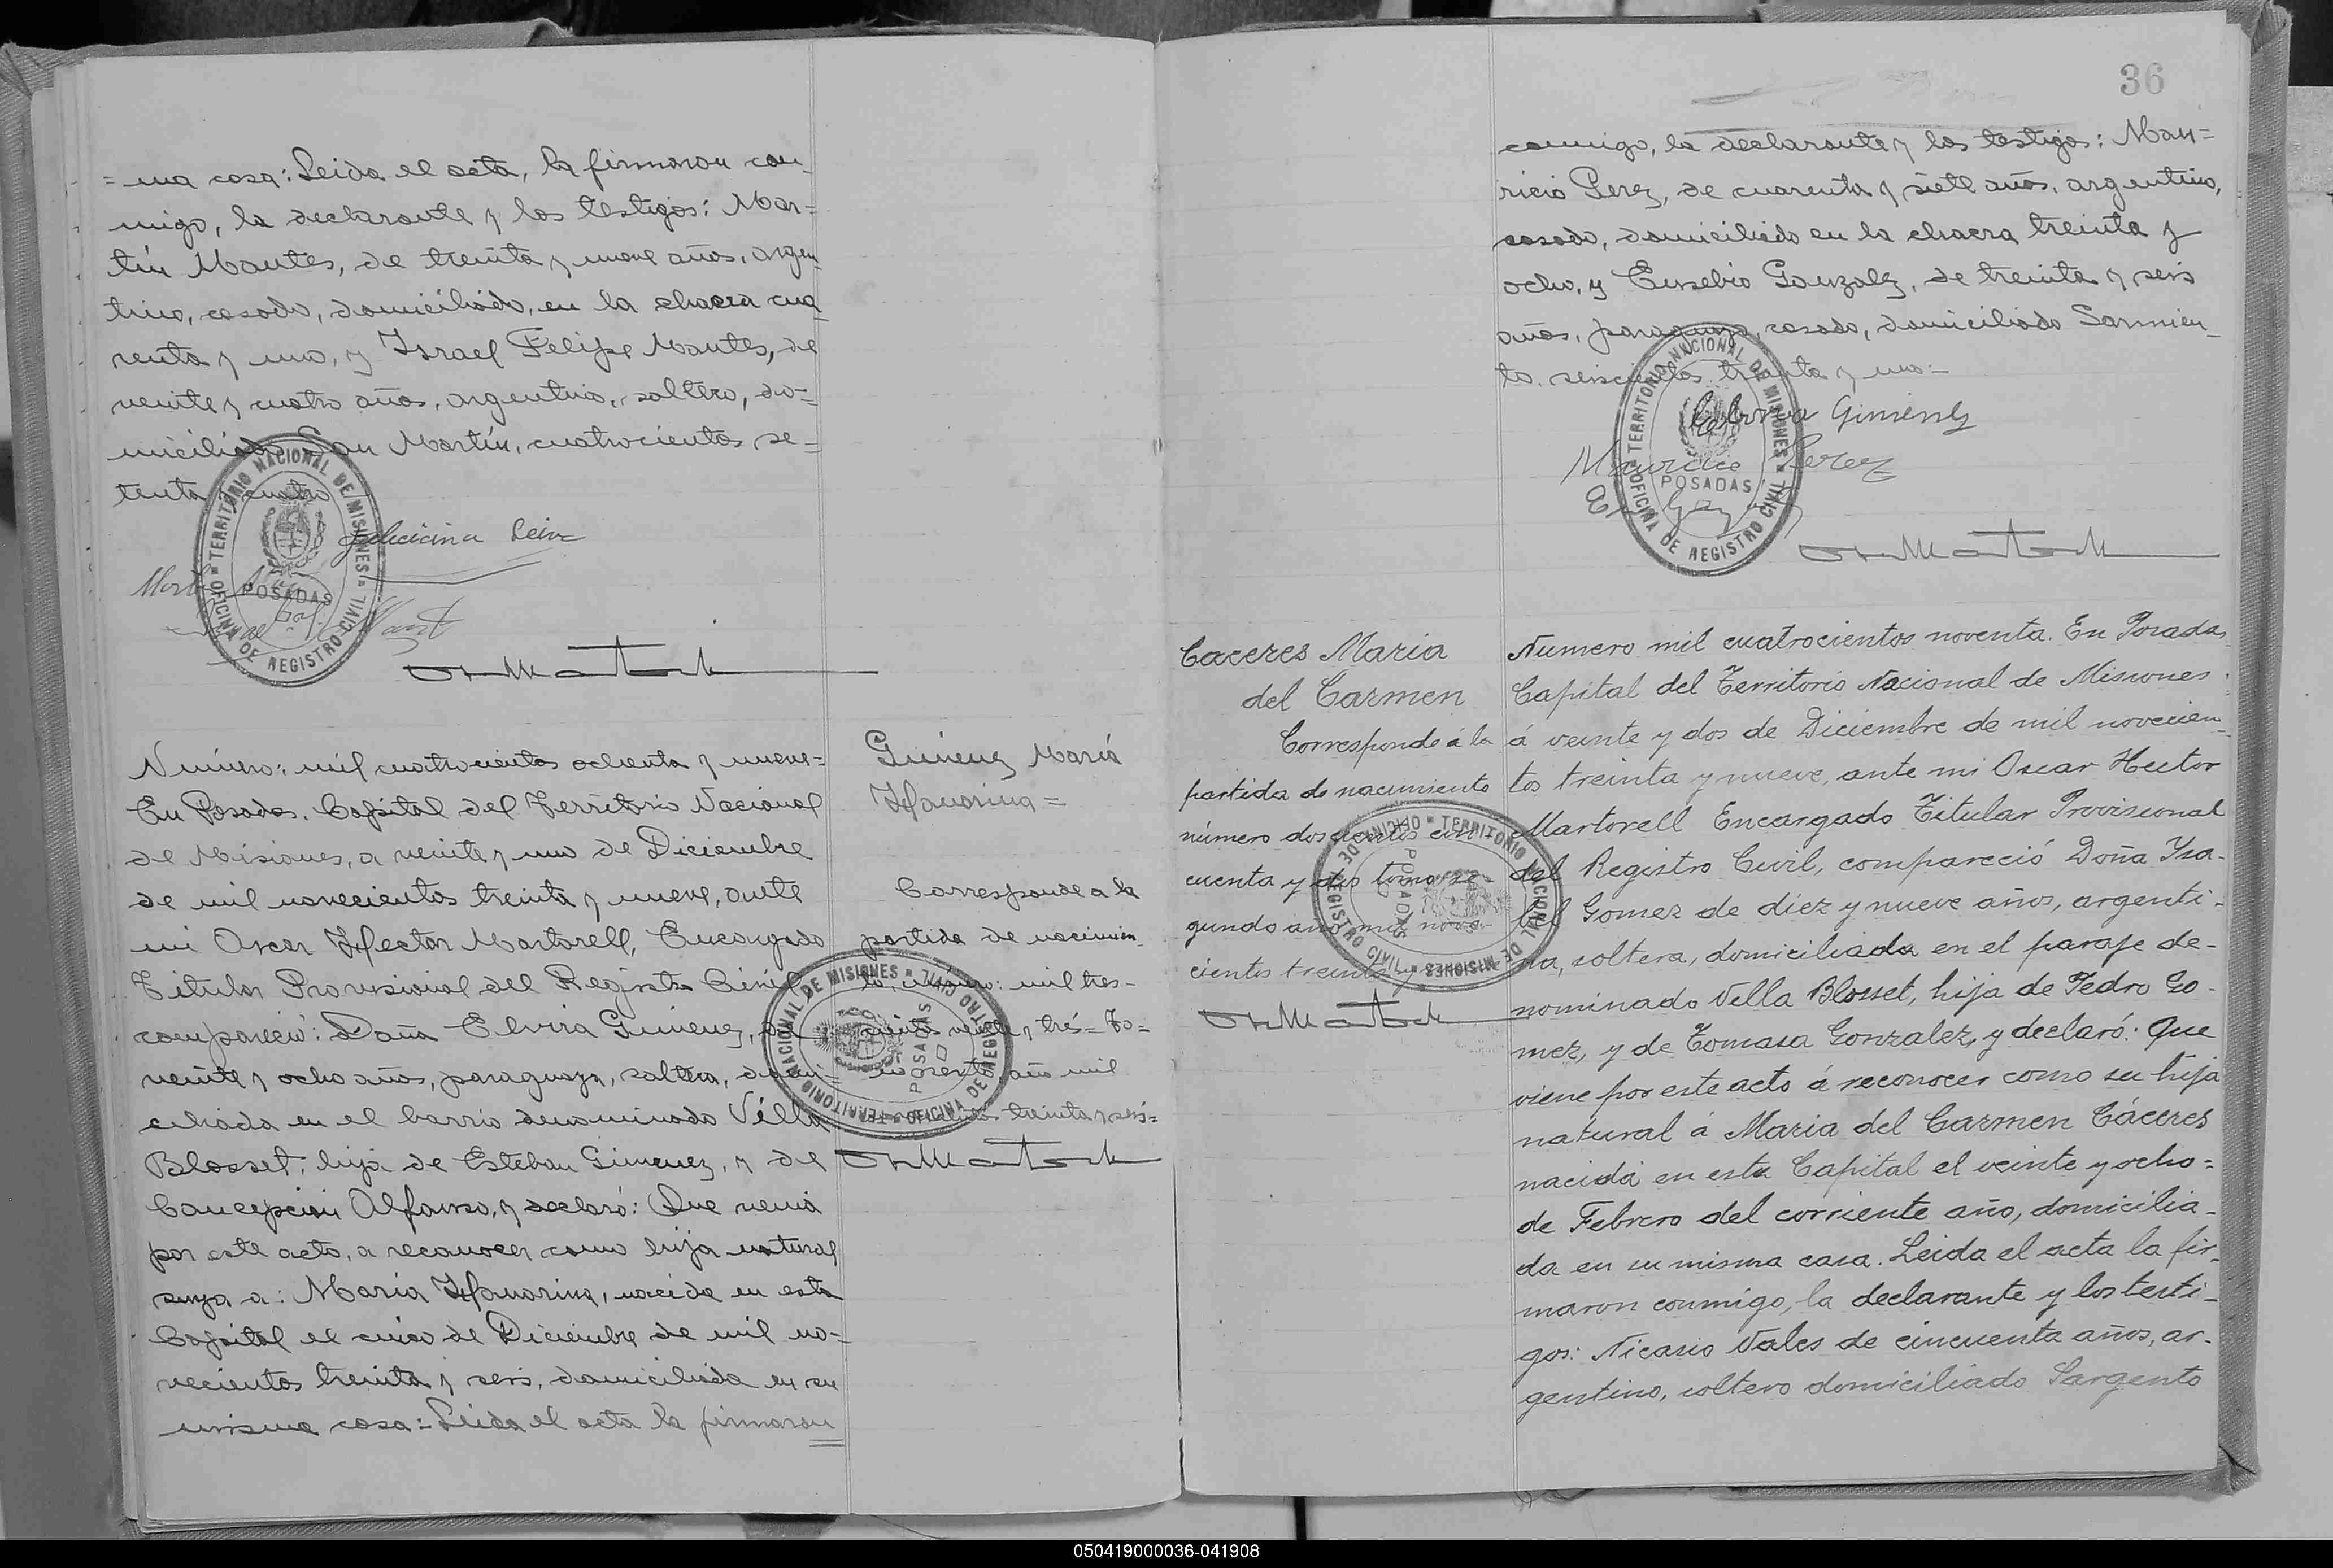 = ma casa: Leida el acta, la firmaron con
migo, la declarante y los testigos: Mar=
tín Mantes, de treinta y nueve años, argen
tino, casado, domiciliado, en la chacra cua
renta y uno, y Israel Felipe Mantes, de
veinte y cuatro años, argentino, soltero, do=
miciliado San Martín, cuatrocientos se=
tenta y cuatro
TERRITORIO NACIONAL DE MISIONES
OFICINA DE REGISTRO CIVIL
POSADAS
Número: mil cuatrocientos ochenta y nueve=
En Posadas, Capital del Territorio Nacional
de Misiones, a veinte y uno de Diciembre
de mil novecientos treinta y nueve, ante
mi Oscar Hector Martorell, Encargado
Titular Provisional del Registro Civil
compareció: Doña Elvira Gimenez, de
veinte y ocho años, paraguaya, soltera, domi=
ciliada en el barrio denominado Villa
Blosset, hija de Esteban Gimenez, y de
Concepción Alfonso, y declaró: Que venia
por este acto, a reconocer como hija natural
suya a: Maria Honorina, nacida en esta
Capital el cinco de Diciembre de mil no=
vecientos treinta y seis, domiciliada en su
misma casa:= Leida el acta la firmaron
Gimenez María
Honorina=
Corresponde a la
partida de nacimien
to, número: mil tres-
cientos veinte y tres= To=
mo sexto, año mil
novecientos treinta y seis=
TERRITORIO NACIONAL DE MISIONES
OFICINA DE REGISTRO CIVIL
POSADAS
36
conmigo, la declarante y los testigos: Mau=
ricio Perez, de cuarenta y siete años, argentino,
casado, domiciliado en la chacra treinta y
ocho, y Eusebio Gonzalez, de treinta y seis
años, paraguayo, casado, domiciliado Sarmien_
to. seiscientos treinta y uno:=
Gimenez
Mauricio Perez
TERRITORIO NACIONAL DE MISIONES
OFICINA DE REGISTRO CIVIL
POSADAS
Caceres Maria
del Carmen
Corresponde á la
partida de nacimiento
número doscientos cin-
cuenta y dos tomo se-
gundo año mil nove-
cientos treinta y
TERRITORIO NACIONAL DE MISIONES
OFICINA DE REGISTRO CIVIL
POSADAS
Numero mil cuatrocientos noventa. En Posadas,
Capital del Territorio Nacional de Misiones
á veinte y dos de Diciembre de mil novecien_
tos treinta y nueve, ante mi Oscar Hector
Martorell Encargado Titular Provisional
del Registro Civil, compareció Doña Ysa-
bel Gomez de diez y nueve años, argenti-
na, soltera, domiciliada en el paraje de-
nominado Villa Blosset, hija de Pedro Go-
mez, y de Tomasa Gonzalez, y declaró: Que
viene por este acto á reconocer como su hija
natural á Maria del Carmen Cáceres
nacida en esta Capital el veinte y ocho=
de Febrero del corriente año, domicilia-
da en su misma casa. Leida el acta la fir-
maron conmigo, la declarante y los testi-
gos: Nicasio Vales de cincuenta años, ar-
gentino, soltero domiciliado Sargento
050419000036-041908